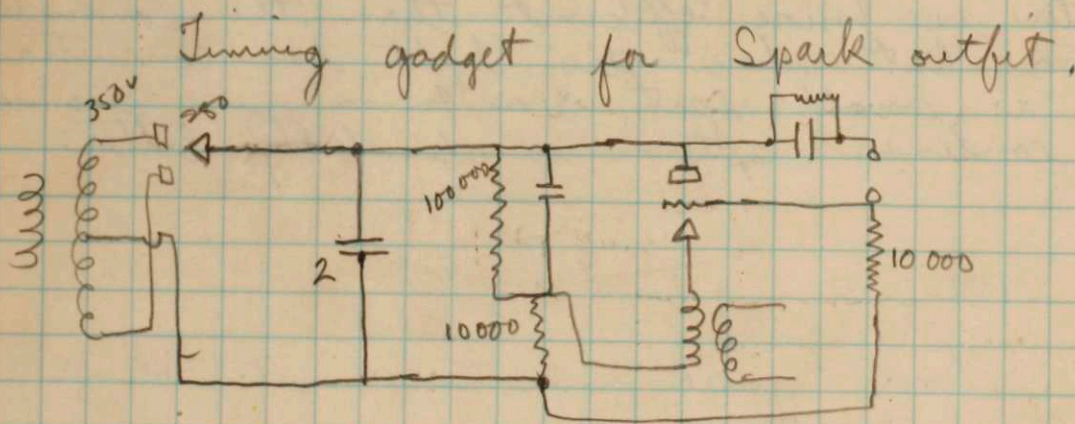 Timing gadget for Spark outfit.
350v
280
100 000
2
10 000
10 000